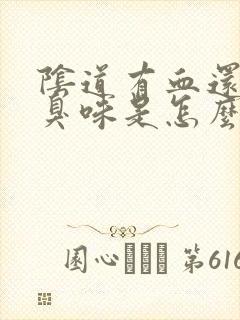 陰道有血還
臭味是怎麼
園心 第616